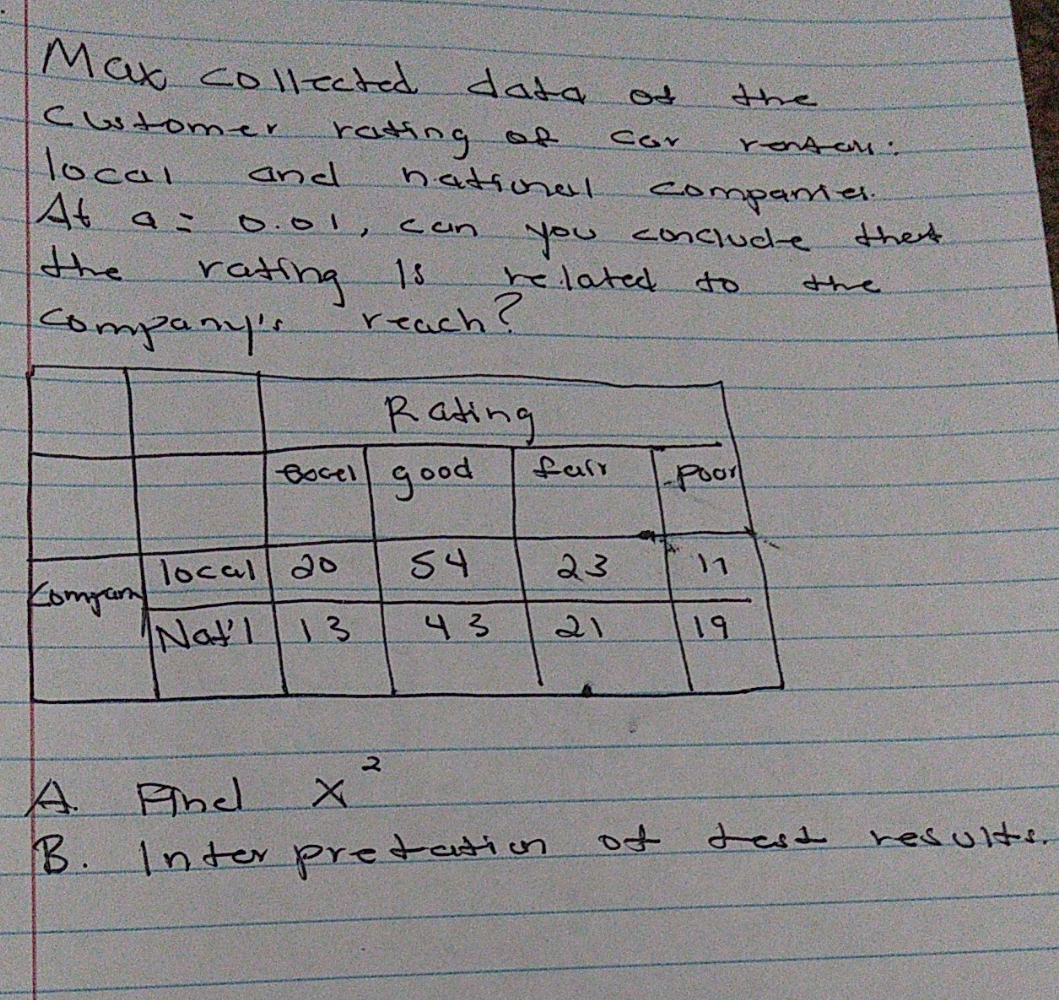 Max collected data of the
customer rating of car rental:
local and national companies.
At a = 0.01, can you conclude that
the rating is related to the
company's reach?
Rating
Excel good fair poor
Company local 20 54 23
Nat'l 13 43 21 19
A. Find X²
B. Interpretation of test results.